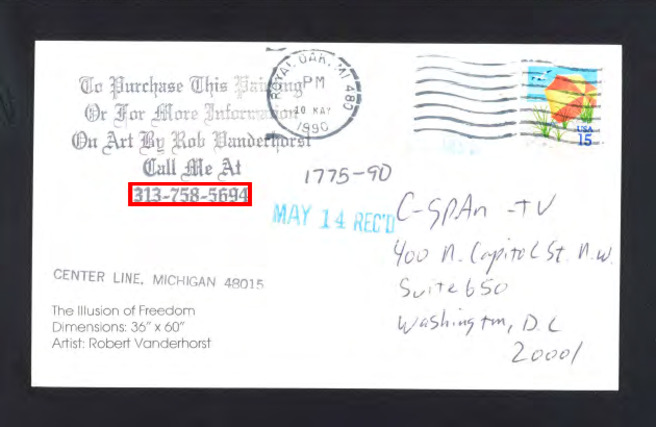 To Purchase This Painting
Or For More Information
On Art By Rob Vanderhorst
Call Me At
313-758-5694
ROYAL OAK, MI 480
PM
10 MAY
1990
USA
15
1775-90
MAY 14 REC'D
C-SPAn -TV
400 N. Capitol St. N.W.
Suite 650
Washington, D.C
20001
CENTER LINE, MICHIGAN 48015
The Illusion of Freedom
Dimensions: 36" x 60"
Artist: Robert Vanderhorst